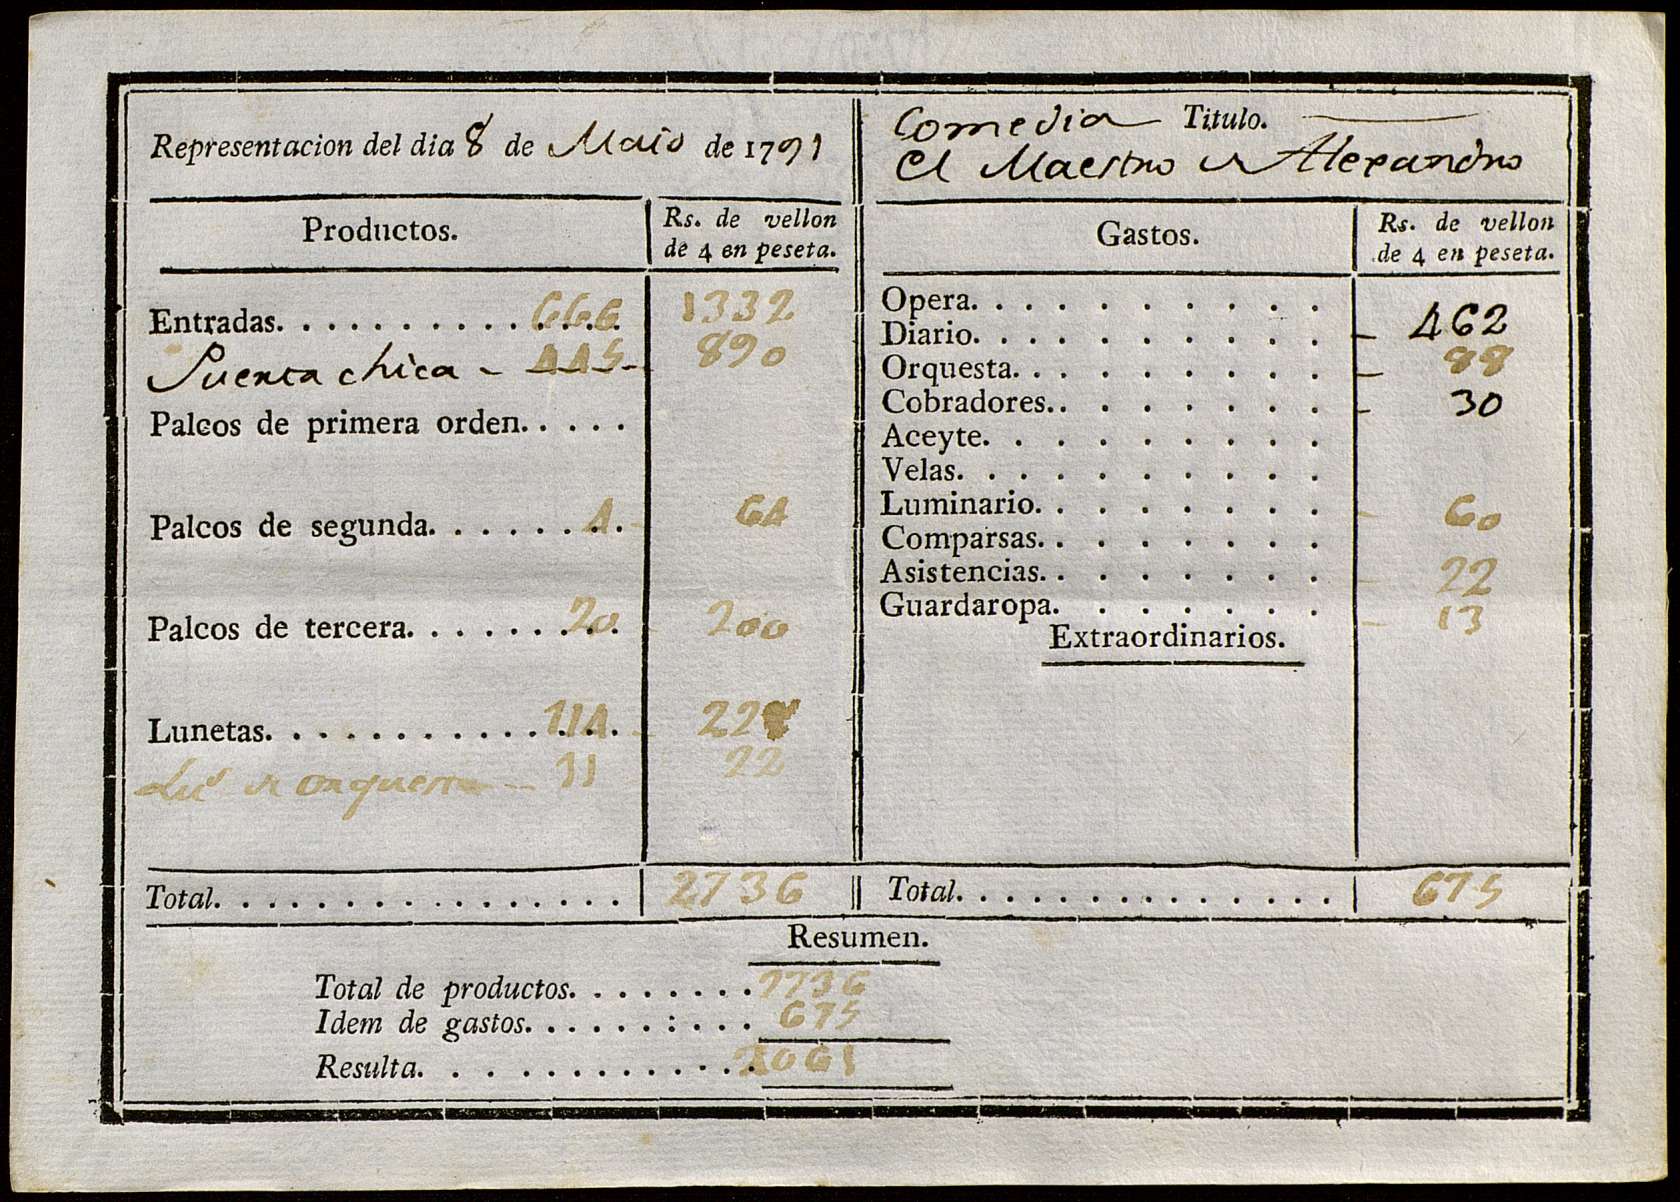 Representacion del dia 8 de Maio de 1791
Productos.
Rs. de vellon
de 4 en peseta.
Entradas. 666 1332
Puerta chica - 445 - 890
Palcos de primera orden.
Palcos de segunda. 4 - 64
Palcos de tercera. 20 - 200
Lunetas. 114 - 228
de orquesta - 11 22
Total. 2736
Comedia Titulo.
El Maestro de Alexandro
Gastos.
Rs. de vellon
de 4 en peseta.
Opera.
Diario. - 462
Orquesta. - 88
Cobradores. - 30
Aceyte.
Velas.
Luminario. - 60
Comparsas.
Asistencias. - 22
Guardaropa. - 13
Extraordinarios.
Total. 675
Resumen.
Total de productos. 2736
Idem de gastos. 675
Resulta. 2061